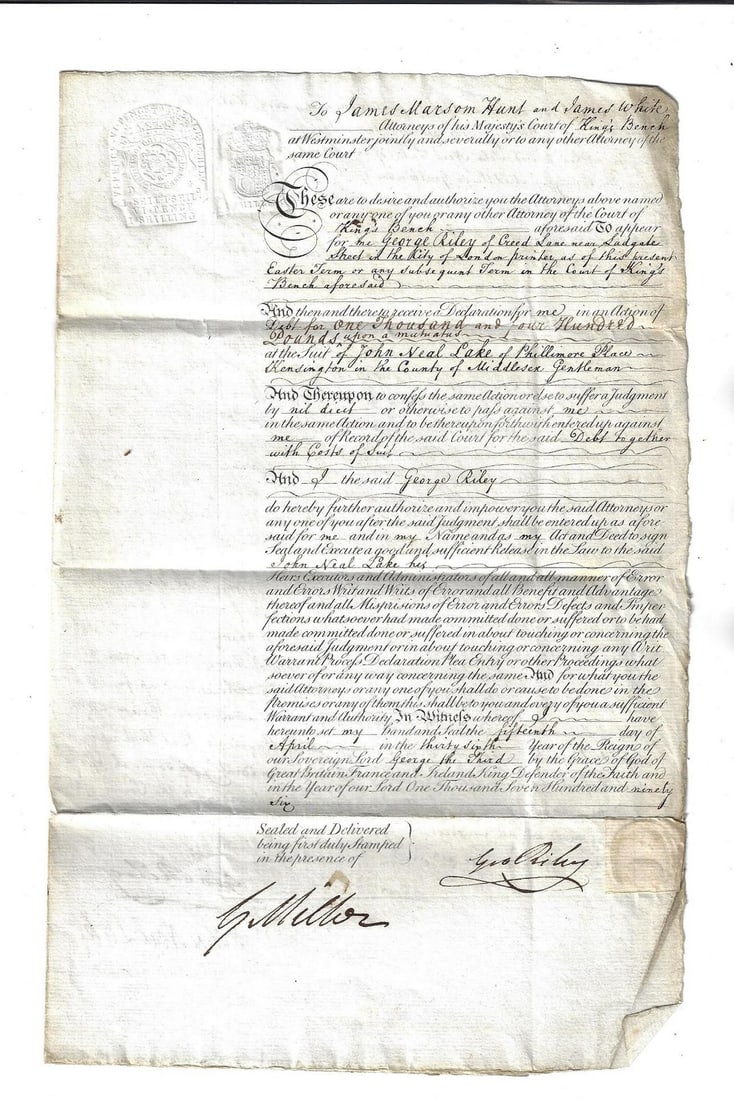 To James Marsom Hunt and James White
Attorneys of his Majesty's Court of King's Bench
at Westminster jointly and severally or to any other Attorney of the
same Court
These are to desire and authorize you the Attorneys above named
or any one of you or any other Attorney of the Court of
King's Bench aforesaid To appear
for me George Riley of Creed Lane near Ludgate
Street in the City of London printer, as of this present
Easter Term or any subsequent Term in the Court of King's
Bench aforesaid
And then and there to receive a Declaration for me in an Action of
Debt for One Thousand and four Hundred
Pounds upon a mutuatus
at the Suit of John Neal Lake of Phillimore Place
Kensington in the County of Middlesex Gentleman
And Thereupon to confess the same Action or else to suffer a Judgment
by nil dicit or otherwise to pass against me
in the same Action and to be thereupon forthwith entered up against
me of Record of the said Court for the said Debt together
with Costs of Suit
And I the said George Riley
do hereby further authorize and impower you the said Attorneys or
any one of you after the said Judgment shall be entered up as afore
said for me and in my Name and as my Act and Deed to sign
Seal and Execute a good and sufficient Release in the Law to the said
John Neal Lake his
Heirs Executors and Administrators of all and all manner of Error
and Errors Writ and Writs of Error and all Benefit and Advantage
thereof and all Misprisions of Error and Errors Defects and Imper
fections whatsoever had made committed done or suffered or to be had
made committed done or suffered in about touching or concerning the
aforesaid Judgment or in about touching or concerning any Writ
Warrant Process Declaration Plea Entry or other Proceedings what
soever of or any way concerning the same And for what you the
said Attorneys or any one of you shall do or cause to be done in the
Premises or any of them this shall be to you and every of you a sufficient
Warrant and Authority In Witness whereof I have
hereunto set my Hand and Seal the fifteenth day of
April in the thirty sixth Year of the Reign of
our Sovereign Lord George the Third by the Grace of God of
Great Britain France and Ireland King Defender of the Faith and
in the Year of our Lord One Thousand Seven Hundred and ninety
Six
Sealed and Delivered
being first duly Stamped
in the presence of
Geo Riley
G Miller